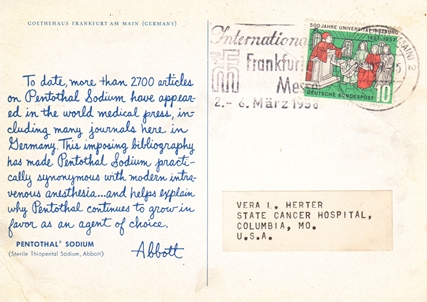 GOETHEHAUS FRANKFURT AM MAIN (GERMANY)
To date, more than 2700 articles
on Pentothal Sodium have appear-
ed in the world medical press, in-
cluding many journals here in
Germany. This imposing bibliography
has made Pentothal Sodium practi-
cally synonymous with modern intra-
venous anesthesia...and helps explain
why Pentothal continues to grow in
favor as an agent of choice.
PENTOTHAL® SODIUM
(Sterile Thiopental Sodium, Abbott)
Abbott
Internationa
Frankfur
Messe
2.-6. März 1958
500 JAHRE UNIVERSITÄT FREIBURG
1457-1957
DEUTSCHE BUNDESPOST
10
VERA L. HERTER
STATE CANCER HOSPITAL,
COLUMBIA, MO.
U.S.A.